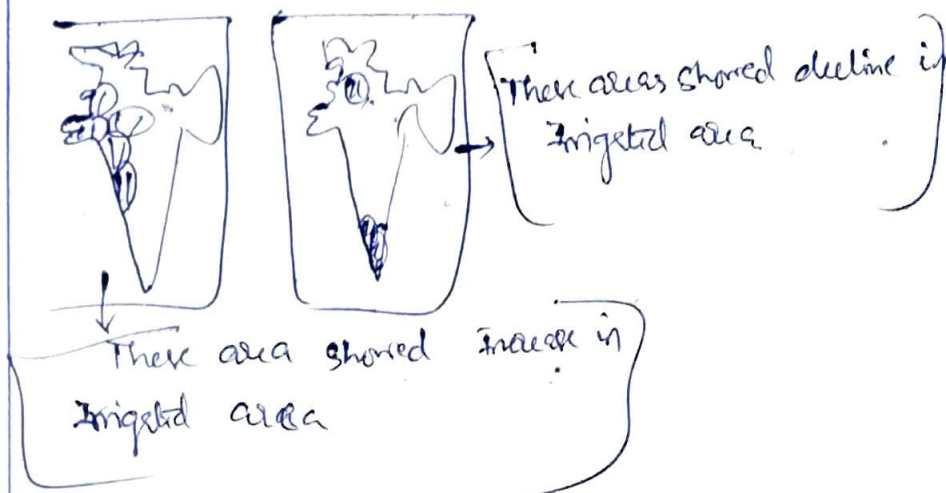 These areas showed decline in
Irrigated area
These area showed Increase in
Irrigated area